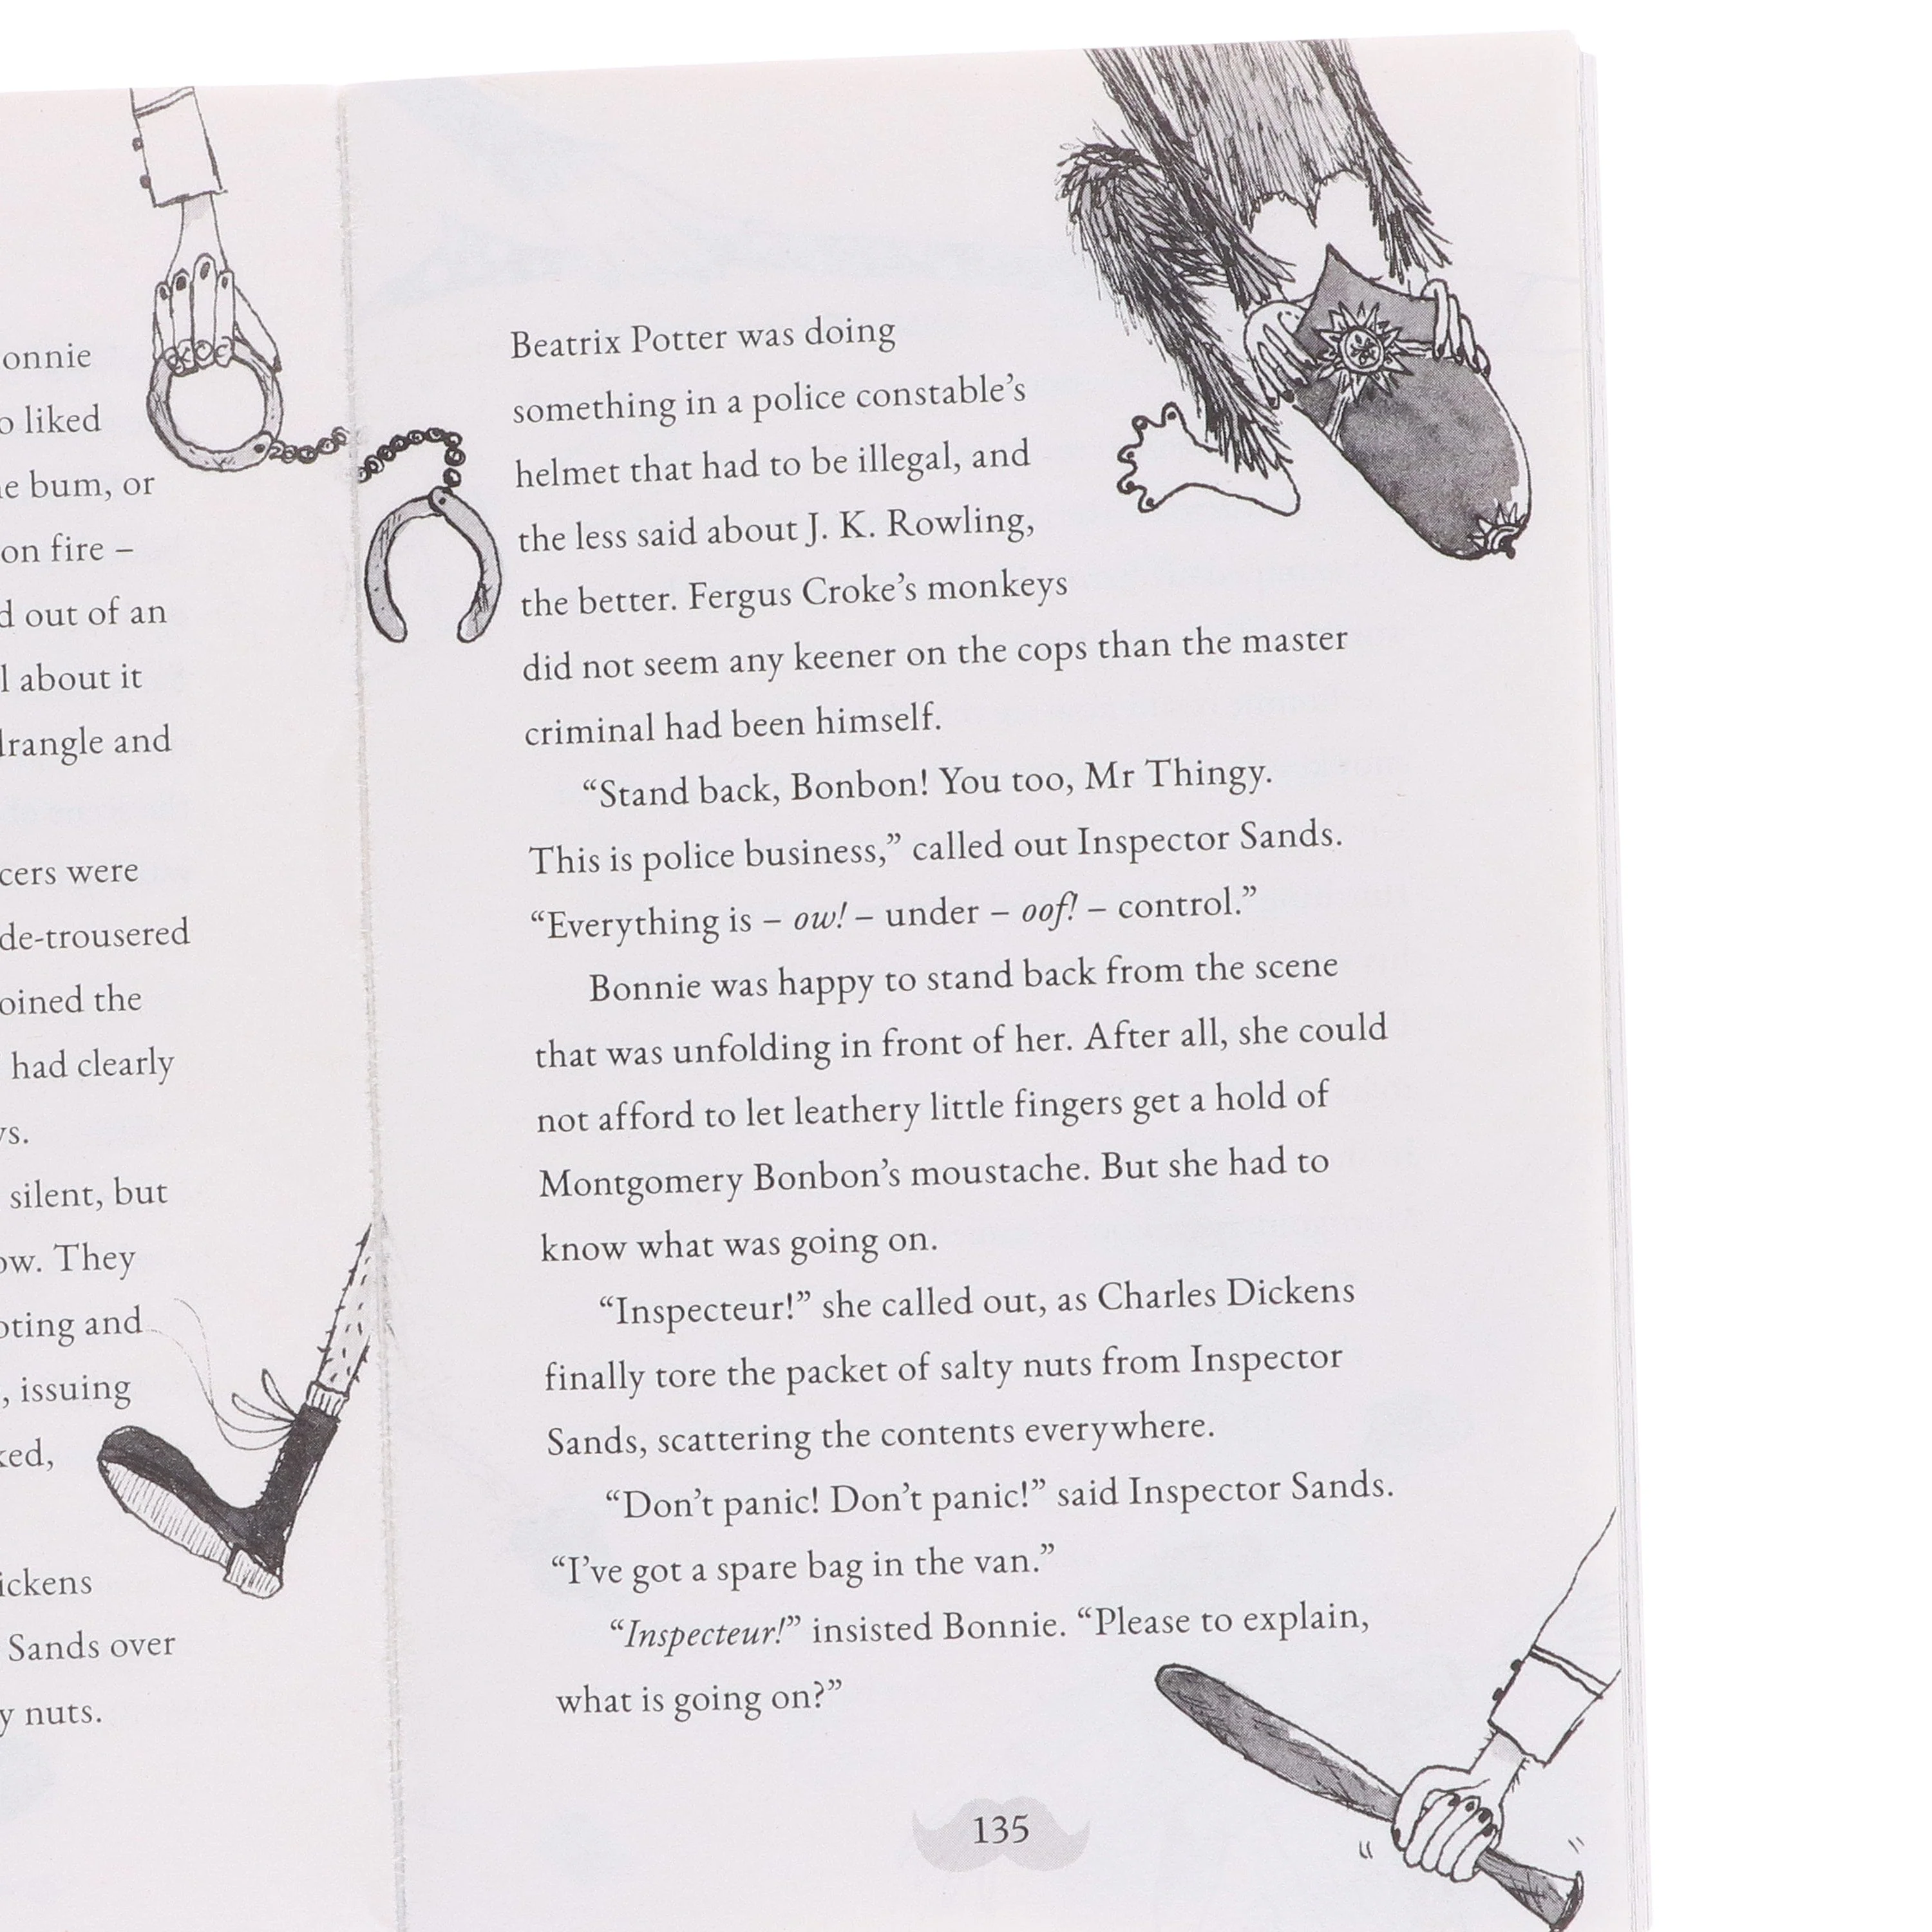 onnie
liked
bum, or
on fire –
out of an
about it
and
were
de-trousered
the
had clearly
silent, but
They
and
, issuing
Sands over
nuts.
Beatrix Potter was doing
something in a police constable’s
helmet that had to be illegal, and
the less said about J. K. Rowling,
the better. Fergus Croke’s monkeys
did not seem any keener on the cops than the master
criminal had been himself.
“Stand back, Bonbon! You too, Mr Thingy.
This is police business,” called out Inspector Sands.
“Everything is – ow! – under – oof! – control.”
Bonnie was happy to stand back from the scene
that was unfolding in front of her. After all, she could
not afford to let leathery little fingers get a hold of
Montgomery Bonbon’s moustache. But she had to
know what was going on.
“Inspecteur!” she called out, as Charles Dickens
finally tore the packet of salty nuts from Inspector
Sands, scattering the contents everywhere.
“Don’t panic! Don’t panic!” said Inspector Sands.
“I’ve got a spare bag in the van.”
“Inspecteur!” insisted Bonnie. “Please to explain,
what is going on?”
135